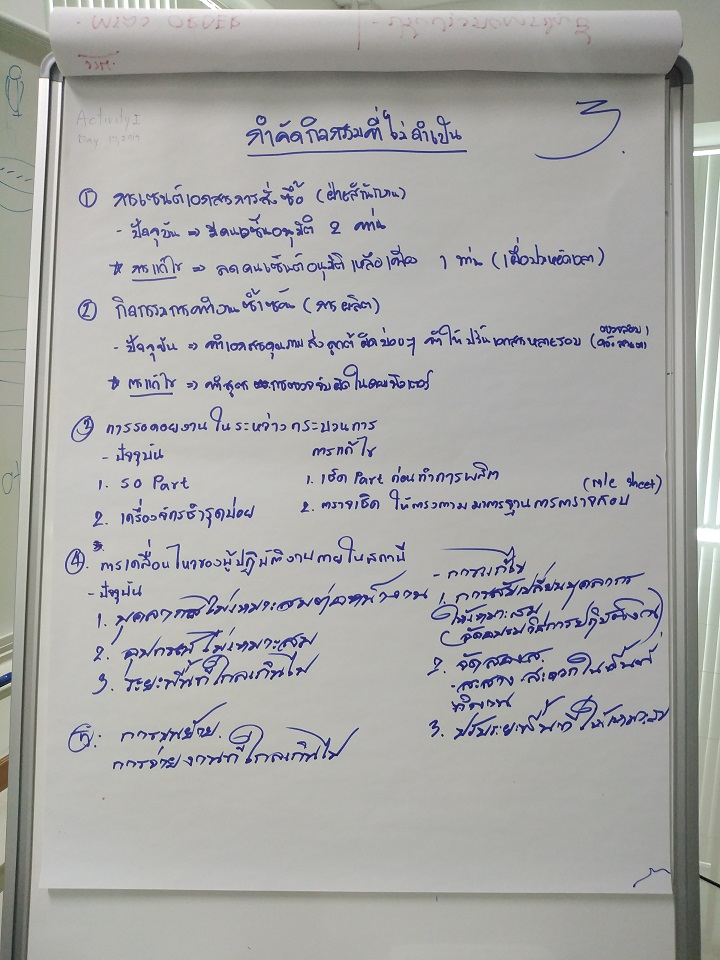 3
กำจัดกิจกรรมที่ไม่จำเป็น
① การเซนต์เอกสารการสั่งซื้อ (ฝ่ายสำนักงาน)
- ปัจจุบัน ⇒ มีคนเซ็นอนุมัติ 2 ท่าน
* การแก้ไข ⇒ ลดคนเซ็นต์อนุมัติ เหลือเพียง 1 ท่าน (เพื่อประหยัดเวลา)
② กิจกรรมการทำงานซ้ำซ้อน (การผลิต)
- ปัจจุบัน ⇒ ทำเอกสารคุณภาพ ส่งลูกค้า ผิดบ่อยๆ ทำให้ปริ้นเอกสารหลายรอบ
* การแก้ไข ⇒ ทำสูตร การตรวจจับผิดในคอมพิวเตอร์
③ การรอคอยงานในระหว่างกระบวนการ
- ปัจจุบัน การแก้ไข
1. รอ Part 1. เช็ค Part ก่อนทำการผลิต
2. เครื่องจักรชำรุดบ่อย 2. ตรวจเช็ค ให้ตรงตามมาตรฐานการตรวจสอบ (m/c sheet)
④. การเคลื่อนไหวของผู้ปฏิบัติงานภายในสถานี
- ปัจจุบัน
1. บุคลากรไม่เหมาะสมต่อหน้างาน
2. อุปกรณ์ไม่เหมาะสม
3. ระยะพื้นที่ไกลเกินไป
- การแก้ไข
1. การสับเปลี่ยนบุคลากร
ให้เหมาะสม
(จัดอบรมวิธีการปฏิบัติงาน)
2. จัดสรร
- สะสาง สะดวกในพื้นที่
ทำงาน
3. ปรับระยะพื้นที่ให้เหมาะสม
⑤. การขนย้าย.
การจ่ายงานที่ไกลเกินไป